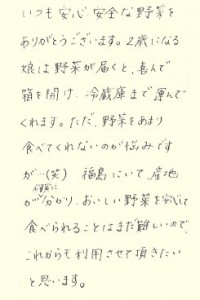 いつも安心安全な野菜を
ありがとうございます。2歳になる
娘は野菜が届くと、喜んで
箱を開け、冷蔵庫まで運んで
くれます。ただ、野菜をあまり
食べてくれないのが悩みです
が…(笑) 福島にいて、産地
が分かり、おいしい野菜を安心して
食べられることはまだ難しいので、
これからも利用させて頂きたい
と思います。